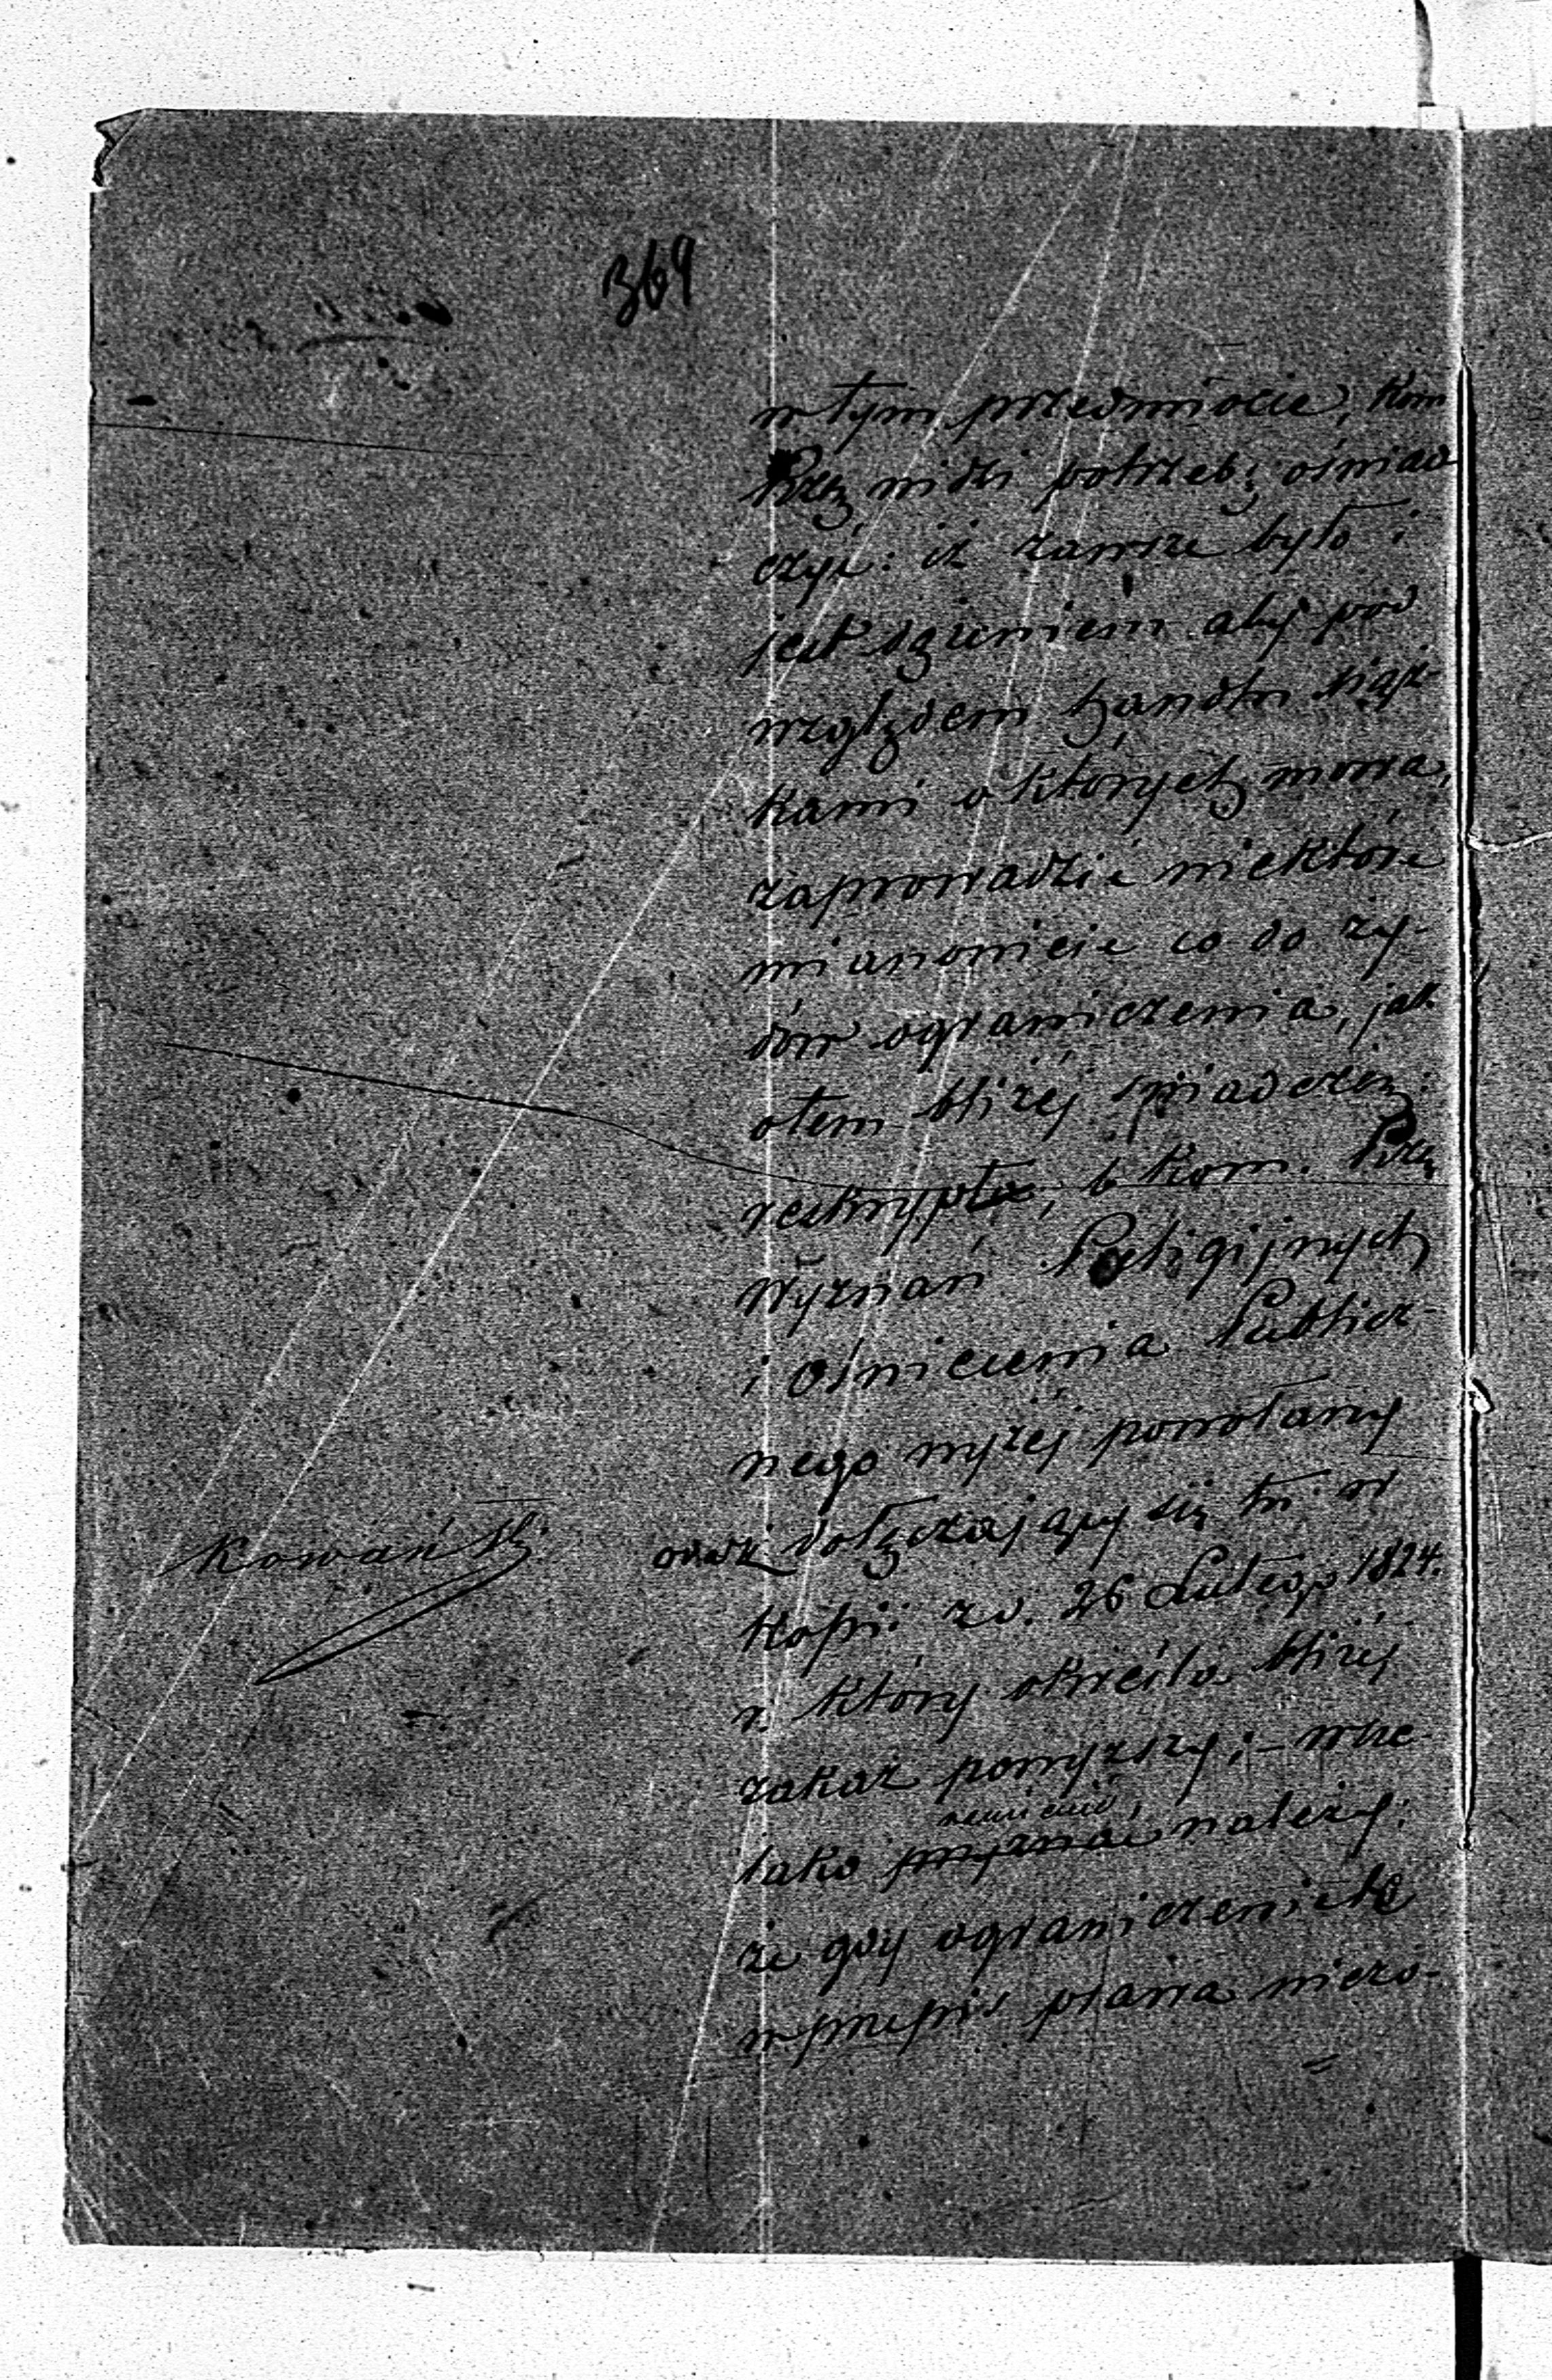 369
w tym przedmiocie, Kom
Rzą widzi potrzebę oświad
czyć: iż zawsze było i
jest dążeniem aby pod
względem handlu książ-
kami o których mowa,
zaprowadzić niektóre
mianowicie co do ży-
dów ograniczenia, jak
otem bliżej świadczy:
reskrypt, b Kom. Rzą
Wyznań Religijnych
i Oświecenia Publicz-
nego wyżej powołany
oraz dołączający się tu w
Kopii z d. 26 Lutego 1824.
r. który określa bliżej
zakaz powyższy; – wsze-
lako należy:
że gdy ograniczenie to
w przepis prawa niezo-
Kowański